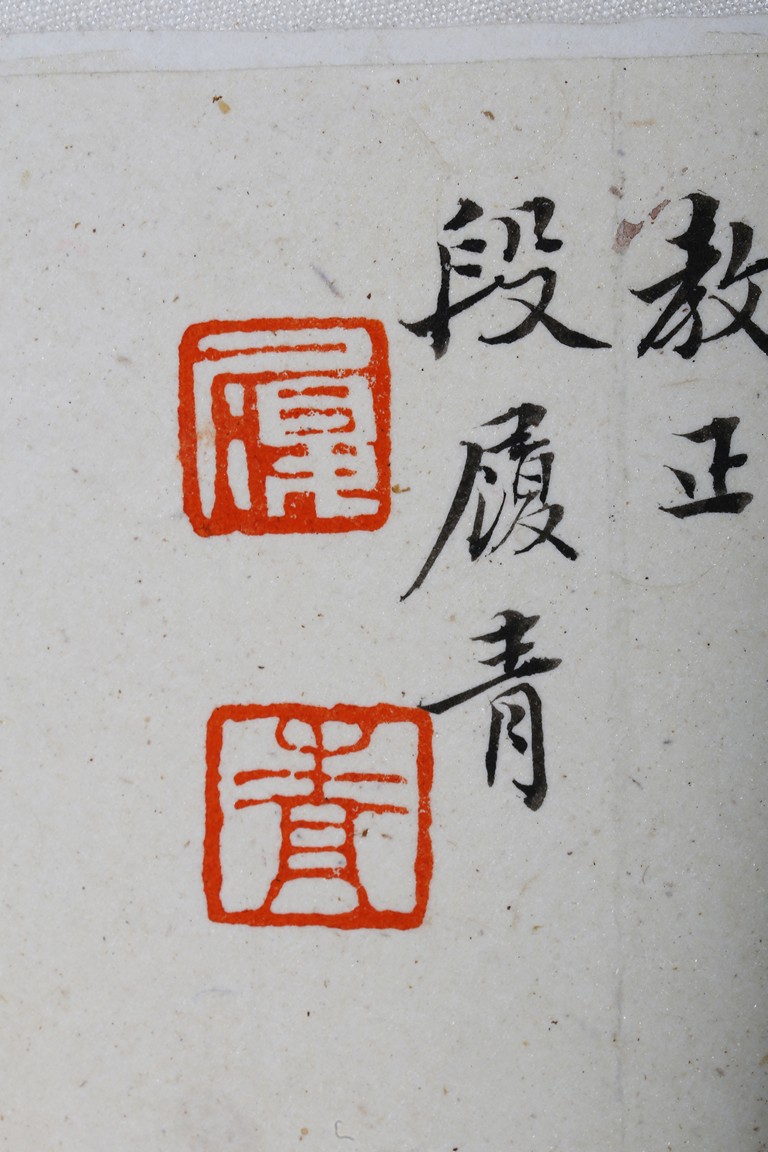 教正
段履青
履
青